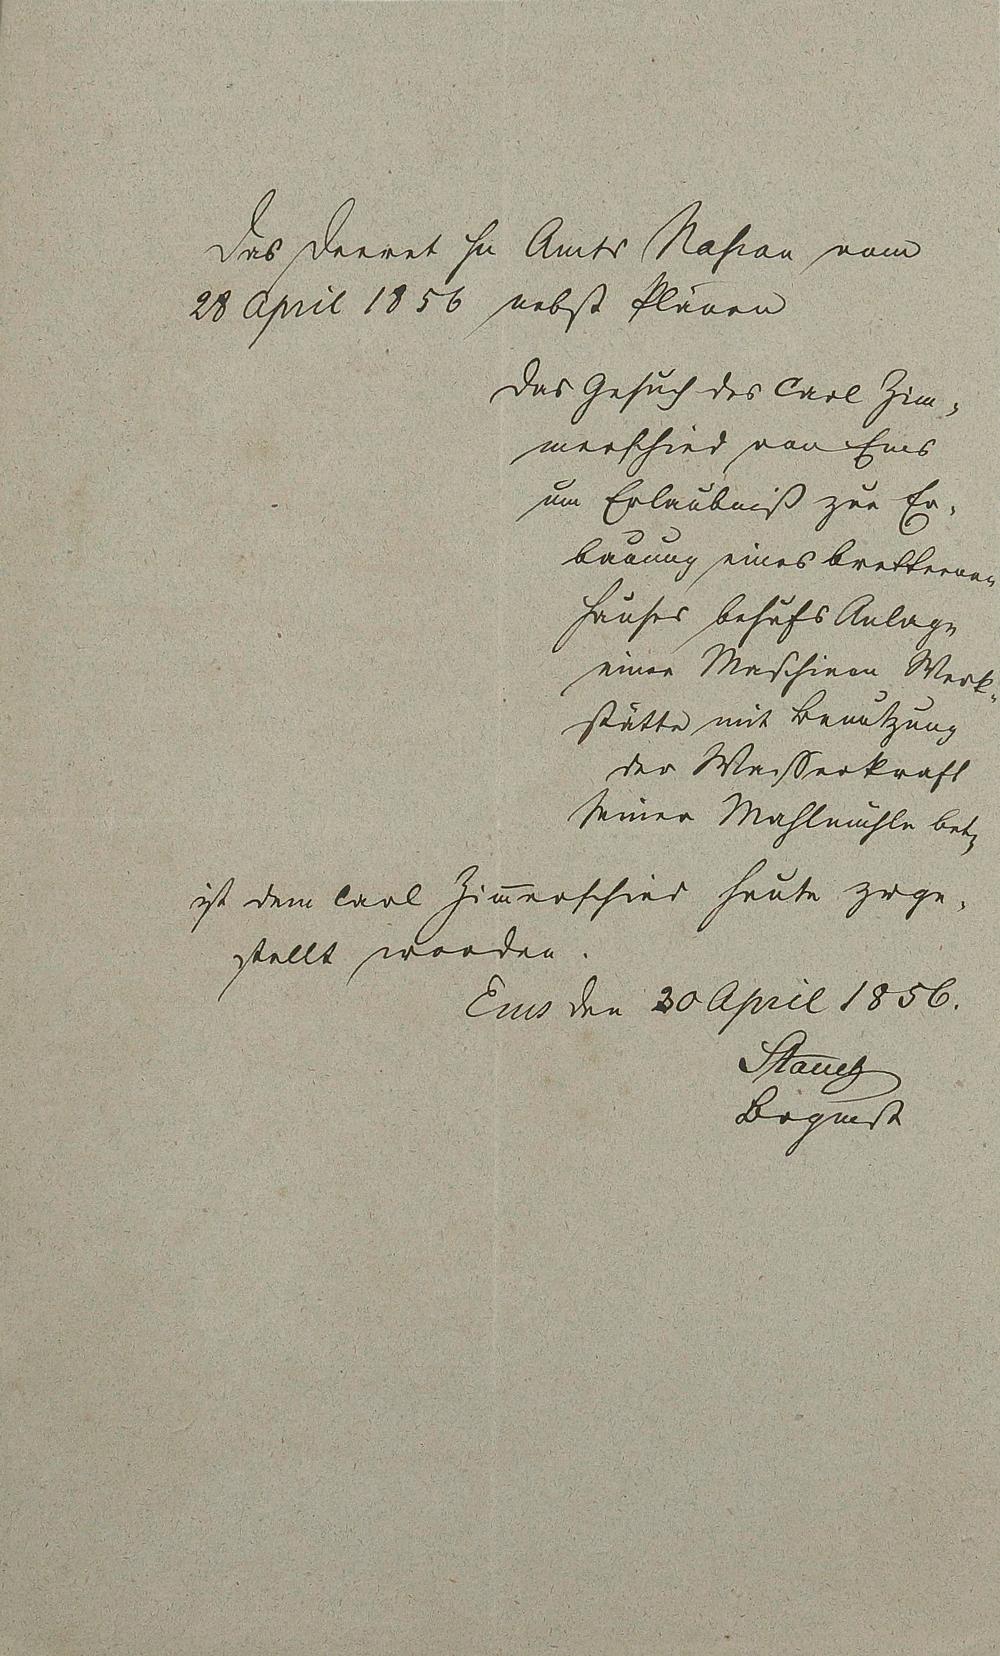 Das Decret Hz Amts Nassau vom
28 April 1856 nebst Plänen
das Gesuch des Carl Zim-
merschied von Ems
um Erlaubniß zur Er-
bauung eines bretternen
Hauses behufs Anlage
einer Maschinen Werk-
stätte mit Benutzung
der Wasserkraft
seiner Mahlmühle betr
ist dem Carl Zim̅erschied heute zuge-
stellt worden.
Ems den 30 April 1856.
Brgmst